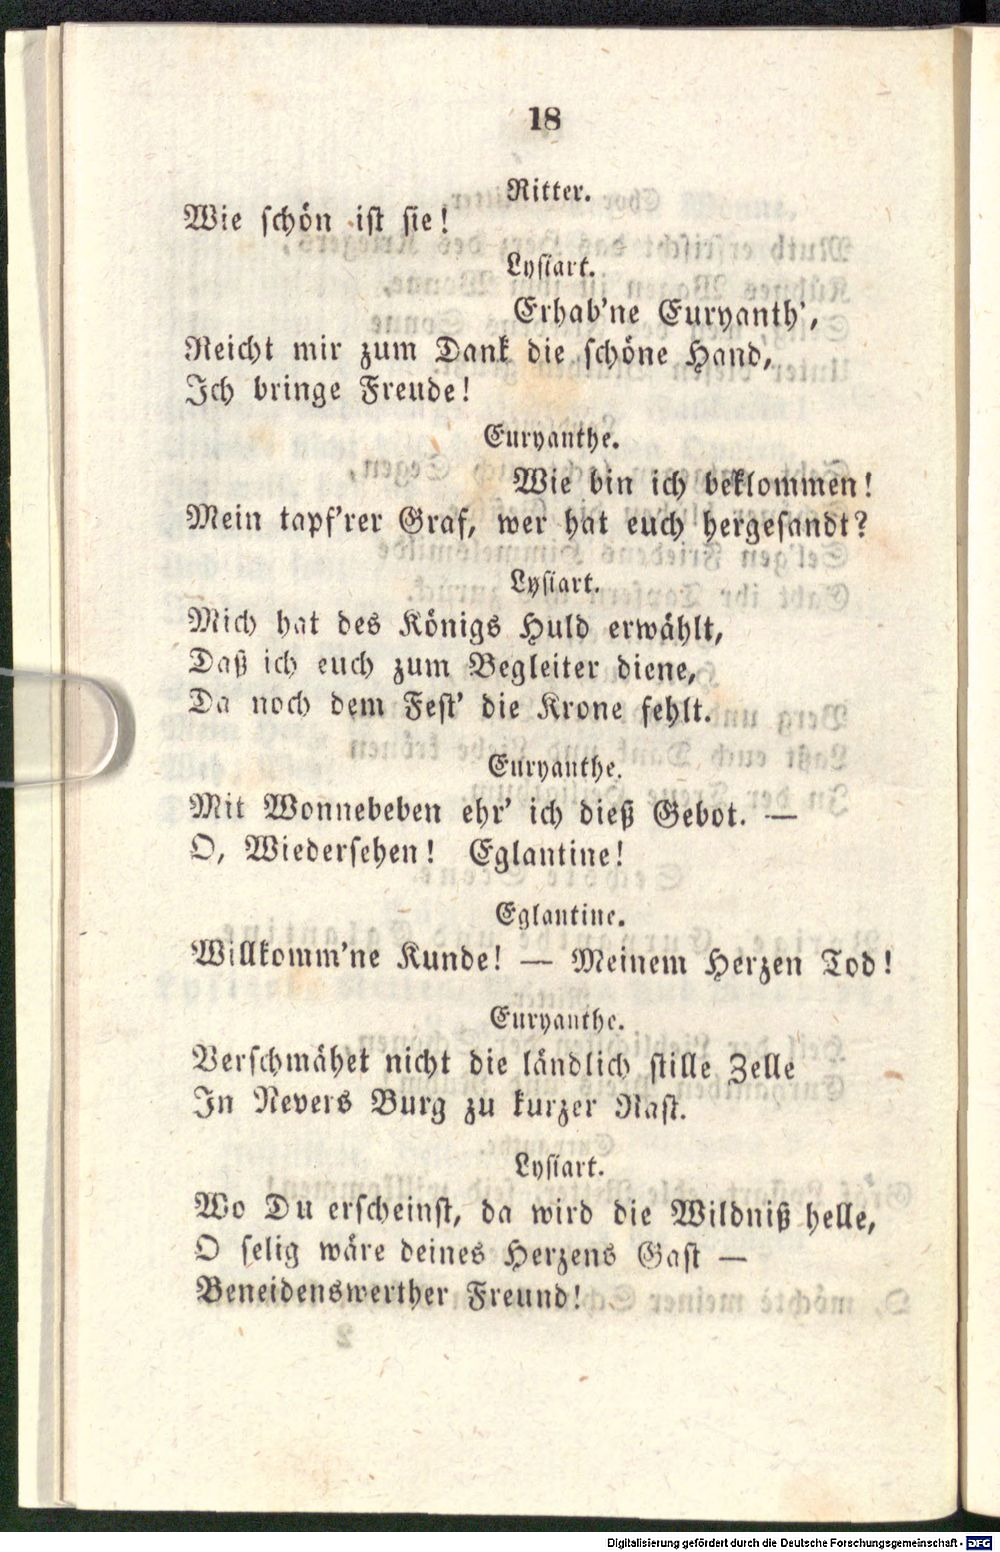 18
Ritter.
Wie schön ist sie!
Lysiart.
Erhab'ne Euryanth',
Reicht mir zum Dank die schöne Hand,
Ich bringe Freude!
Euryanthe.
Wie bin ich beklommen!
Mein tapf'rer Graf, wer hat euch hergesandt?
Lysiart.
Mich hat des Königs Huld erwählt,
Daß ich euch zum Begleiter diene,
Da noch dem Fest' die Krone fehlt.
Euryanthe.
Mit Wonnebeben ehr' ich dieß Gebot. —
O, Wiedersehen! Eglantine!
Eglantine.
Willkomm'ne Kunde! — Meinem Herzen Tod!
Euryanthe.
Verschmähet nicht die ländlich stille Zelle
In Nevers Burg zu kurzer Rast.
Lysiart.
Wo Du erscheinst, da wird die Wildniß helle,
O selig wäre deines Herzens Gast —
Beneidenswerther Freund!
Digitalisierung gefördert durch die Deutsche Forschungsgemeinschaft - DFG